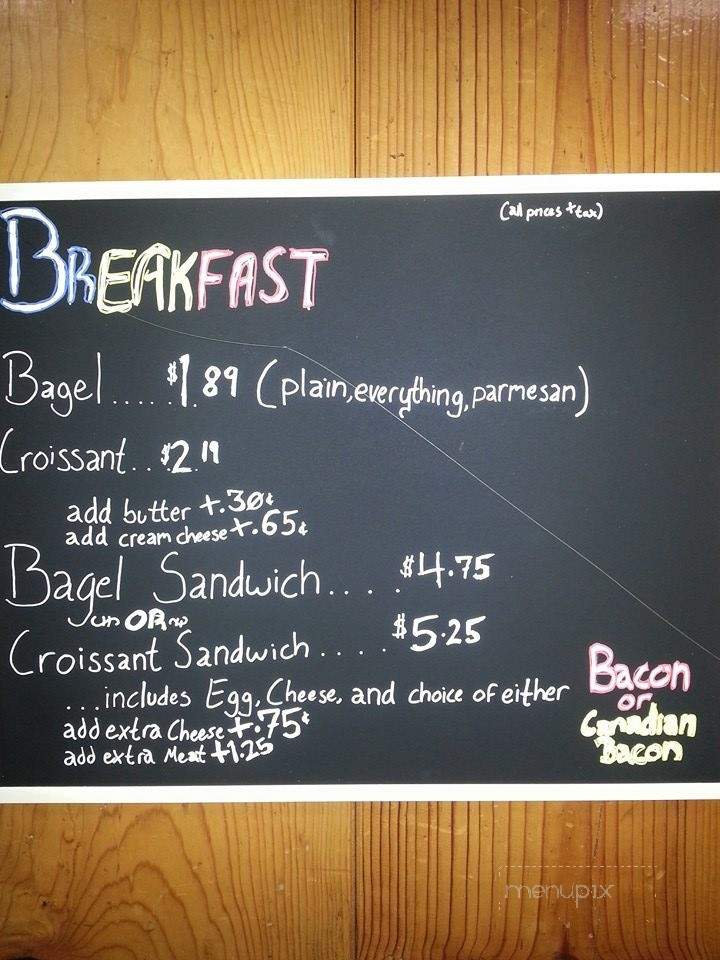 (all prices + tax)
BREAKFAST
Bagel..... $1.89 (plain, everything, parmesan)
Croissant.. $2.19
add butter +.30¢
add cream cheese +.65¢
Bagel Sandwich.... $4.75
OR
Croissant Sandwich.... $5.25
...includes Egg, Cheese, and choice of either Bacon
or
Canadian
Bacon
add extra Cheese +.75¢
add extra Meat +1.25
menupix